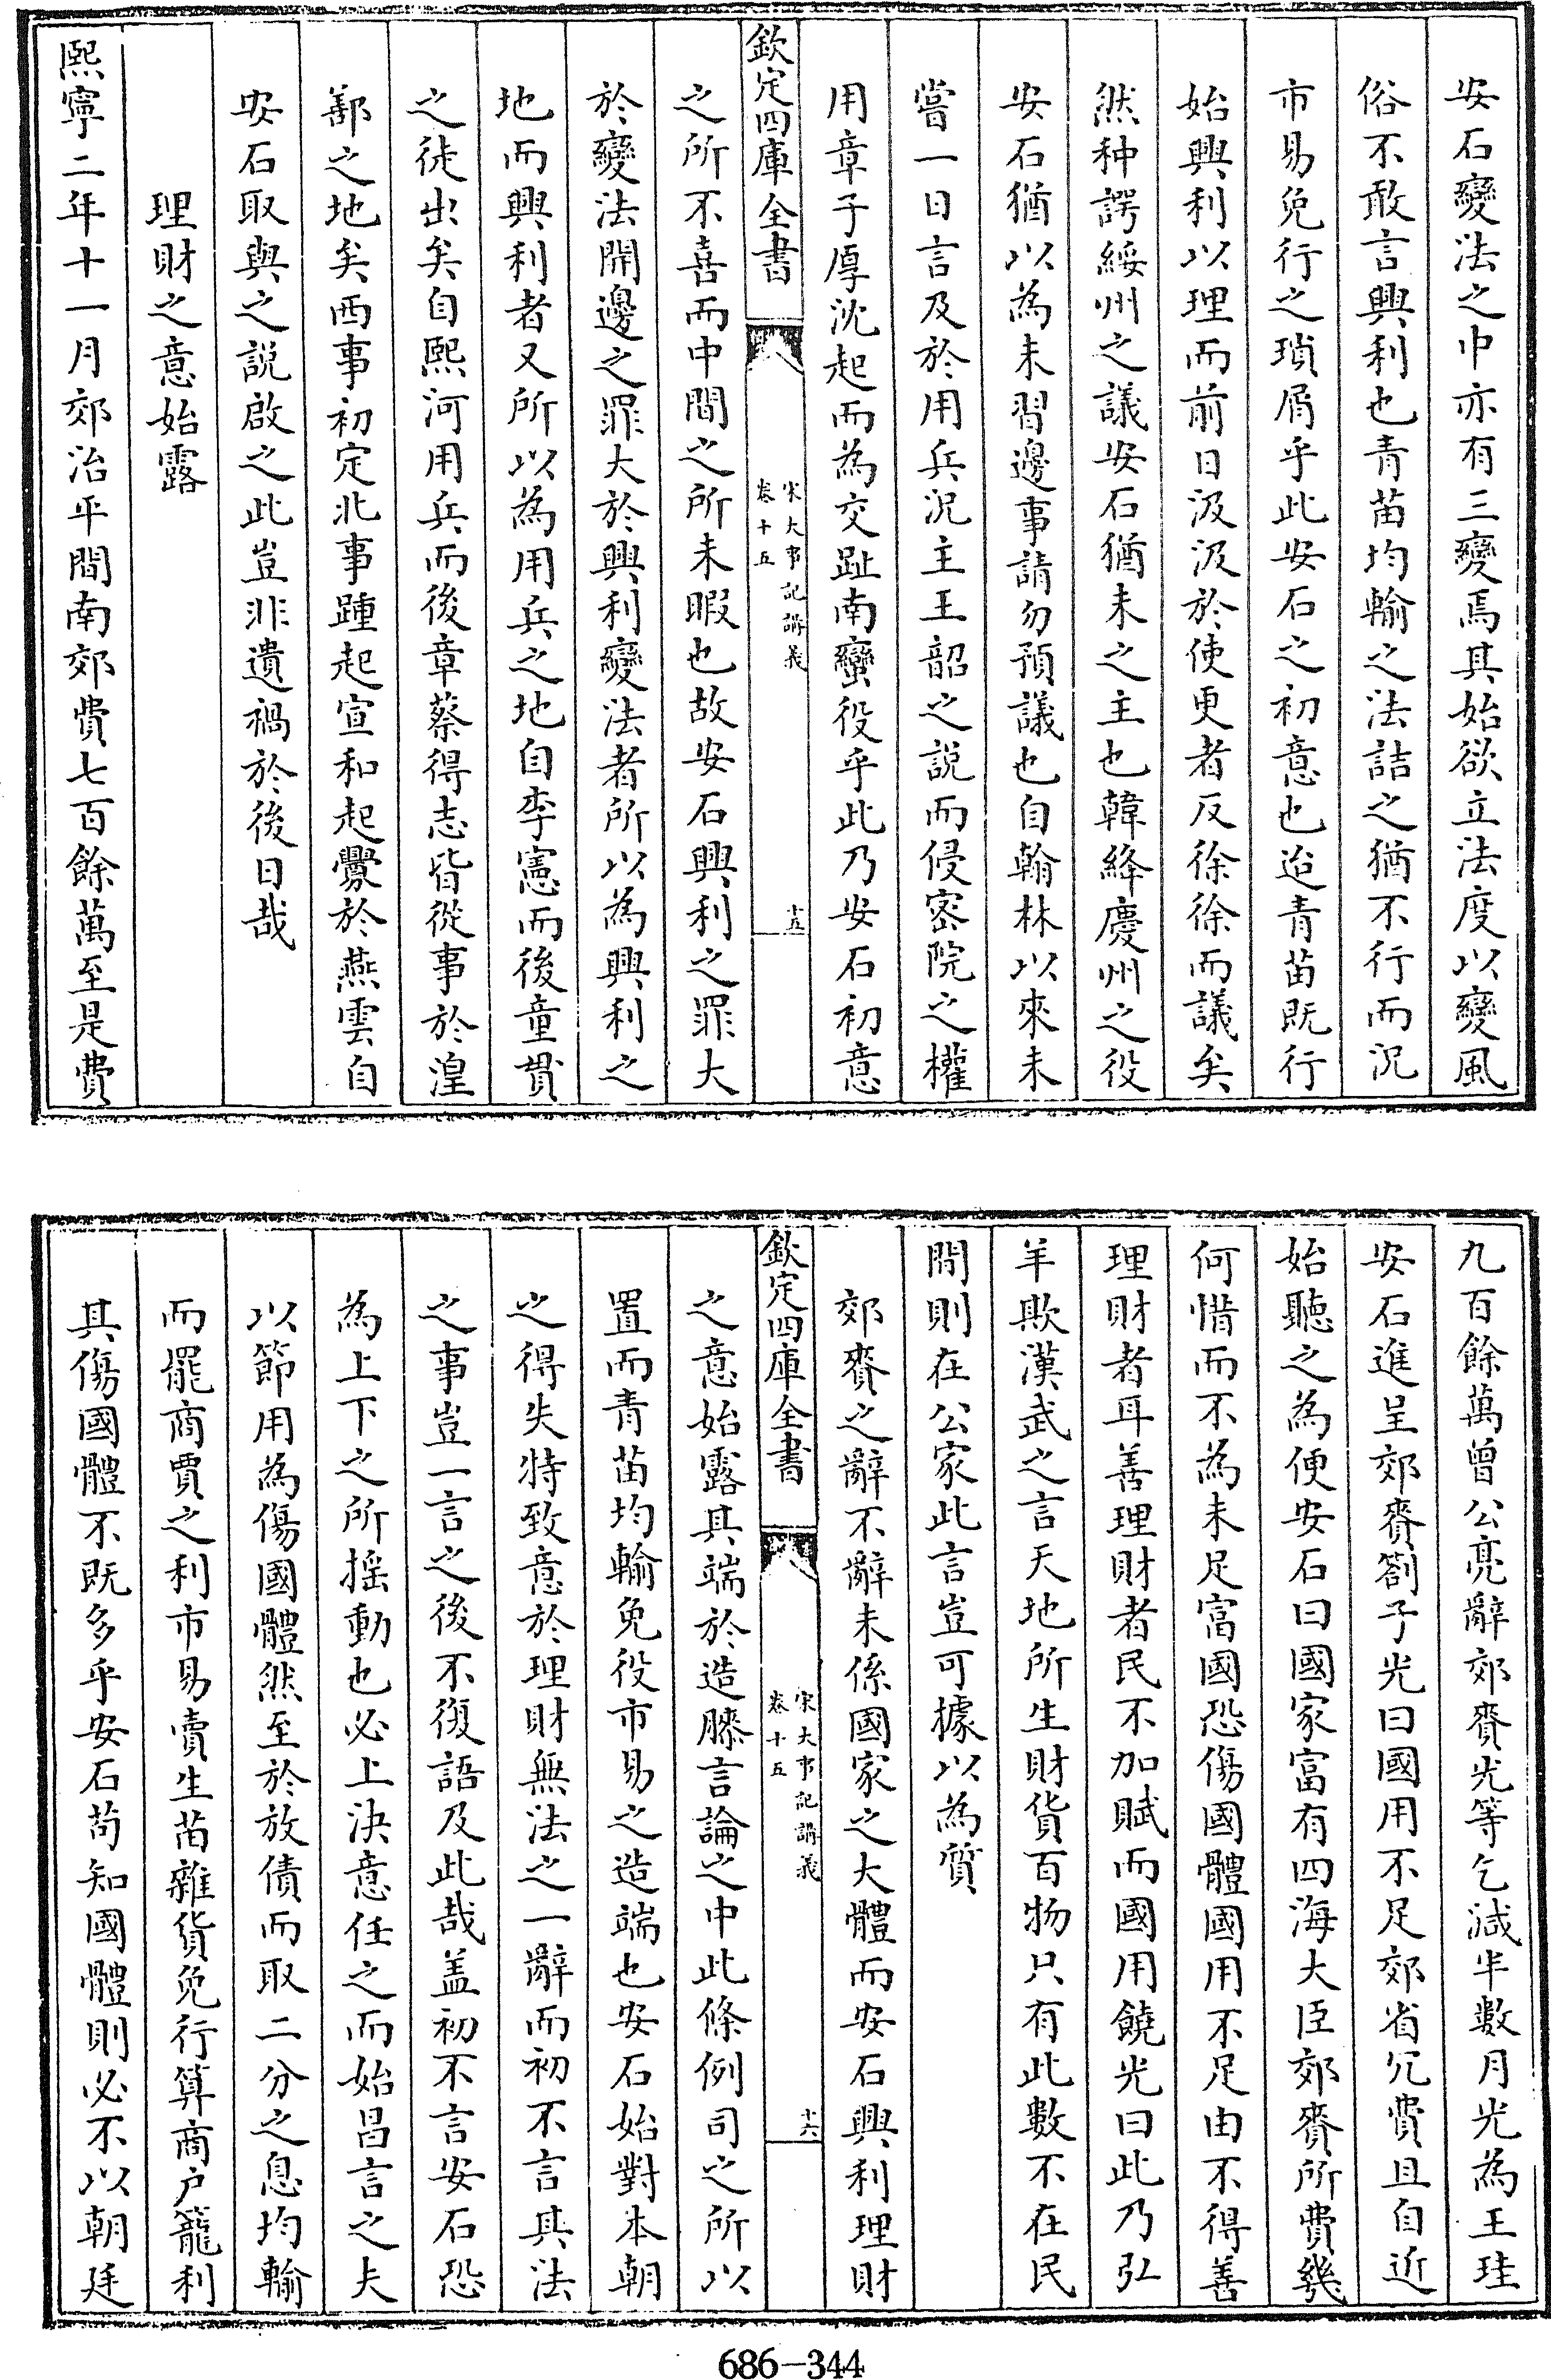 安石變法之中亦有三變焉其始欲立法度以變風
俗不敢言興利也青苗均輸之法詰之猶不行而況
市易免行之瑣屑乎此安石之初意也迨青苗既行
始興利以理而前日汲汲於使更者反徐徐而議矣
然种諤綏州之議安石猶未之主也韓絳慶州之役
安石猶以為未習邊事請勿預議也自翰林以來未
嘗一日言及於用兵況主王韶之説而侵宻院之權
用章子厚沈起而為交趾南蠻役乎此乃安石初意
欽定四庫全書
宋大事記講義
卷十五
十五
之所不喜而中間之所未暇也故安石興利之罪大
於變法開邊之罪大於興利變法者所以為興利之
地而興利者又所以為用兵之地自李憲而後童貫
之徒出矣自熙河用兵而後章蔡得志皆從事於湟
鄯之地矣西事初定北事踵起宣和起釁於燕雲自
安石取與之説啟之此豈非遺禍於後日哉
理財之意始露
熙寧二年十一月郊治平間南郊費七百餘萬至是費
九百餘萬曾公亮辭郊賚光等乞減半數月光為王珪
安石進呈郊賚劄子光曰國用不足郊省冗費且自近
始聽之為便安石曰國家富有四海大臣郊賚所費幾
何惜而不為未足富國恐傷國體國用不足由不得善
理財者耳善理財者民不加賦而國用饒光曰此乃弘
羊欺漢武之言天地所生財貨百物只有此數不在民
間則在公家此言豈可據以為質
郊賚之辭不辭未係國家之大體而安石興利理財
欽定四庫全書
宋大事記講義
卷十五
十六
之意始露其端於造膝言論之中此條例司之所以
置而青苗均輸免役市易之造端也安石始對本朝
之得失特致意於理財無法之一辭而初不言其法
之事豈一言之後不復語及此哉蓋初不言安石恐
為上下之所揺動也必上決意任之而始昌言之夫
以節用為傷國體然至於放債而取二分之息均輸
而罷商賈之利市易賣生菂雜貨免行算商戶籠利
其傷國體不既多乎安石苟知國體則必不以朝廷
686-344